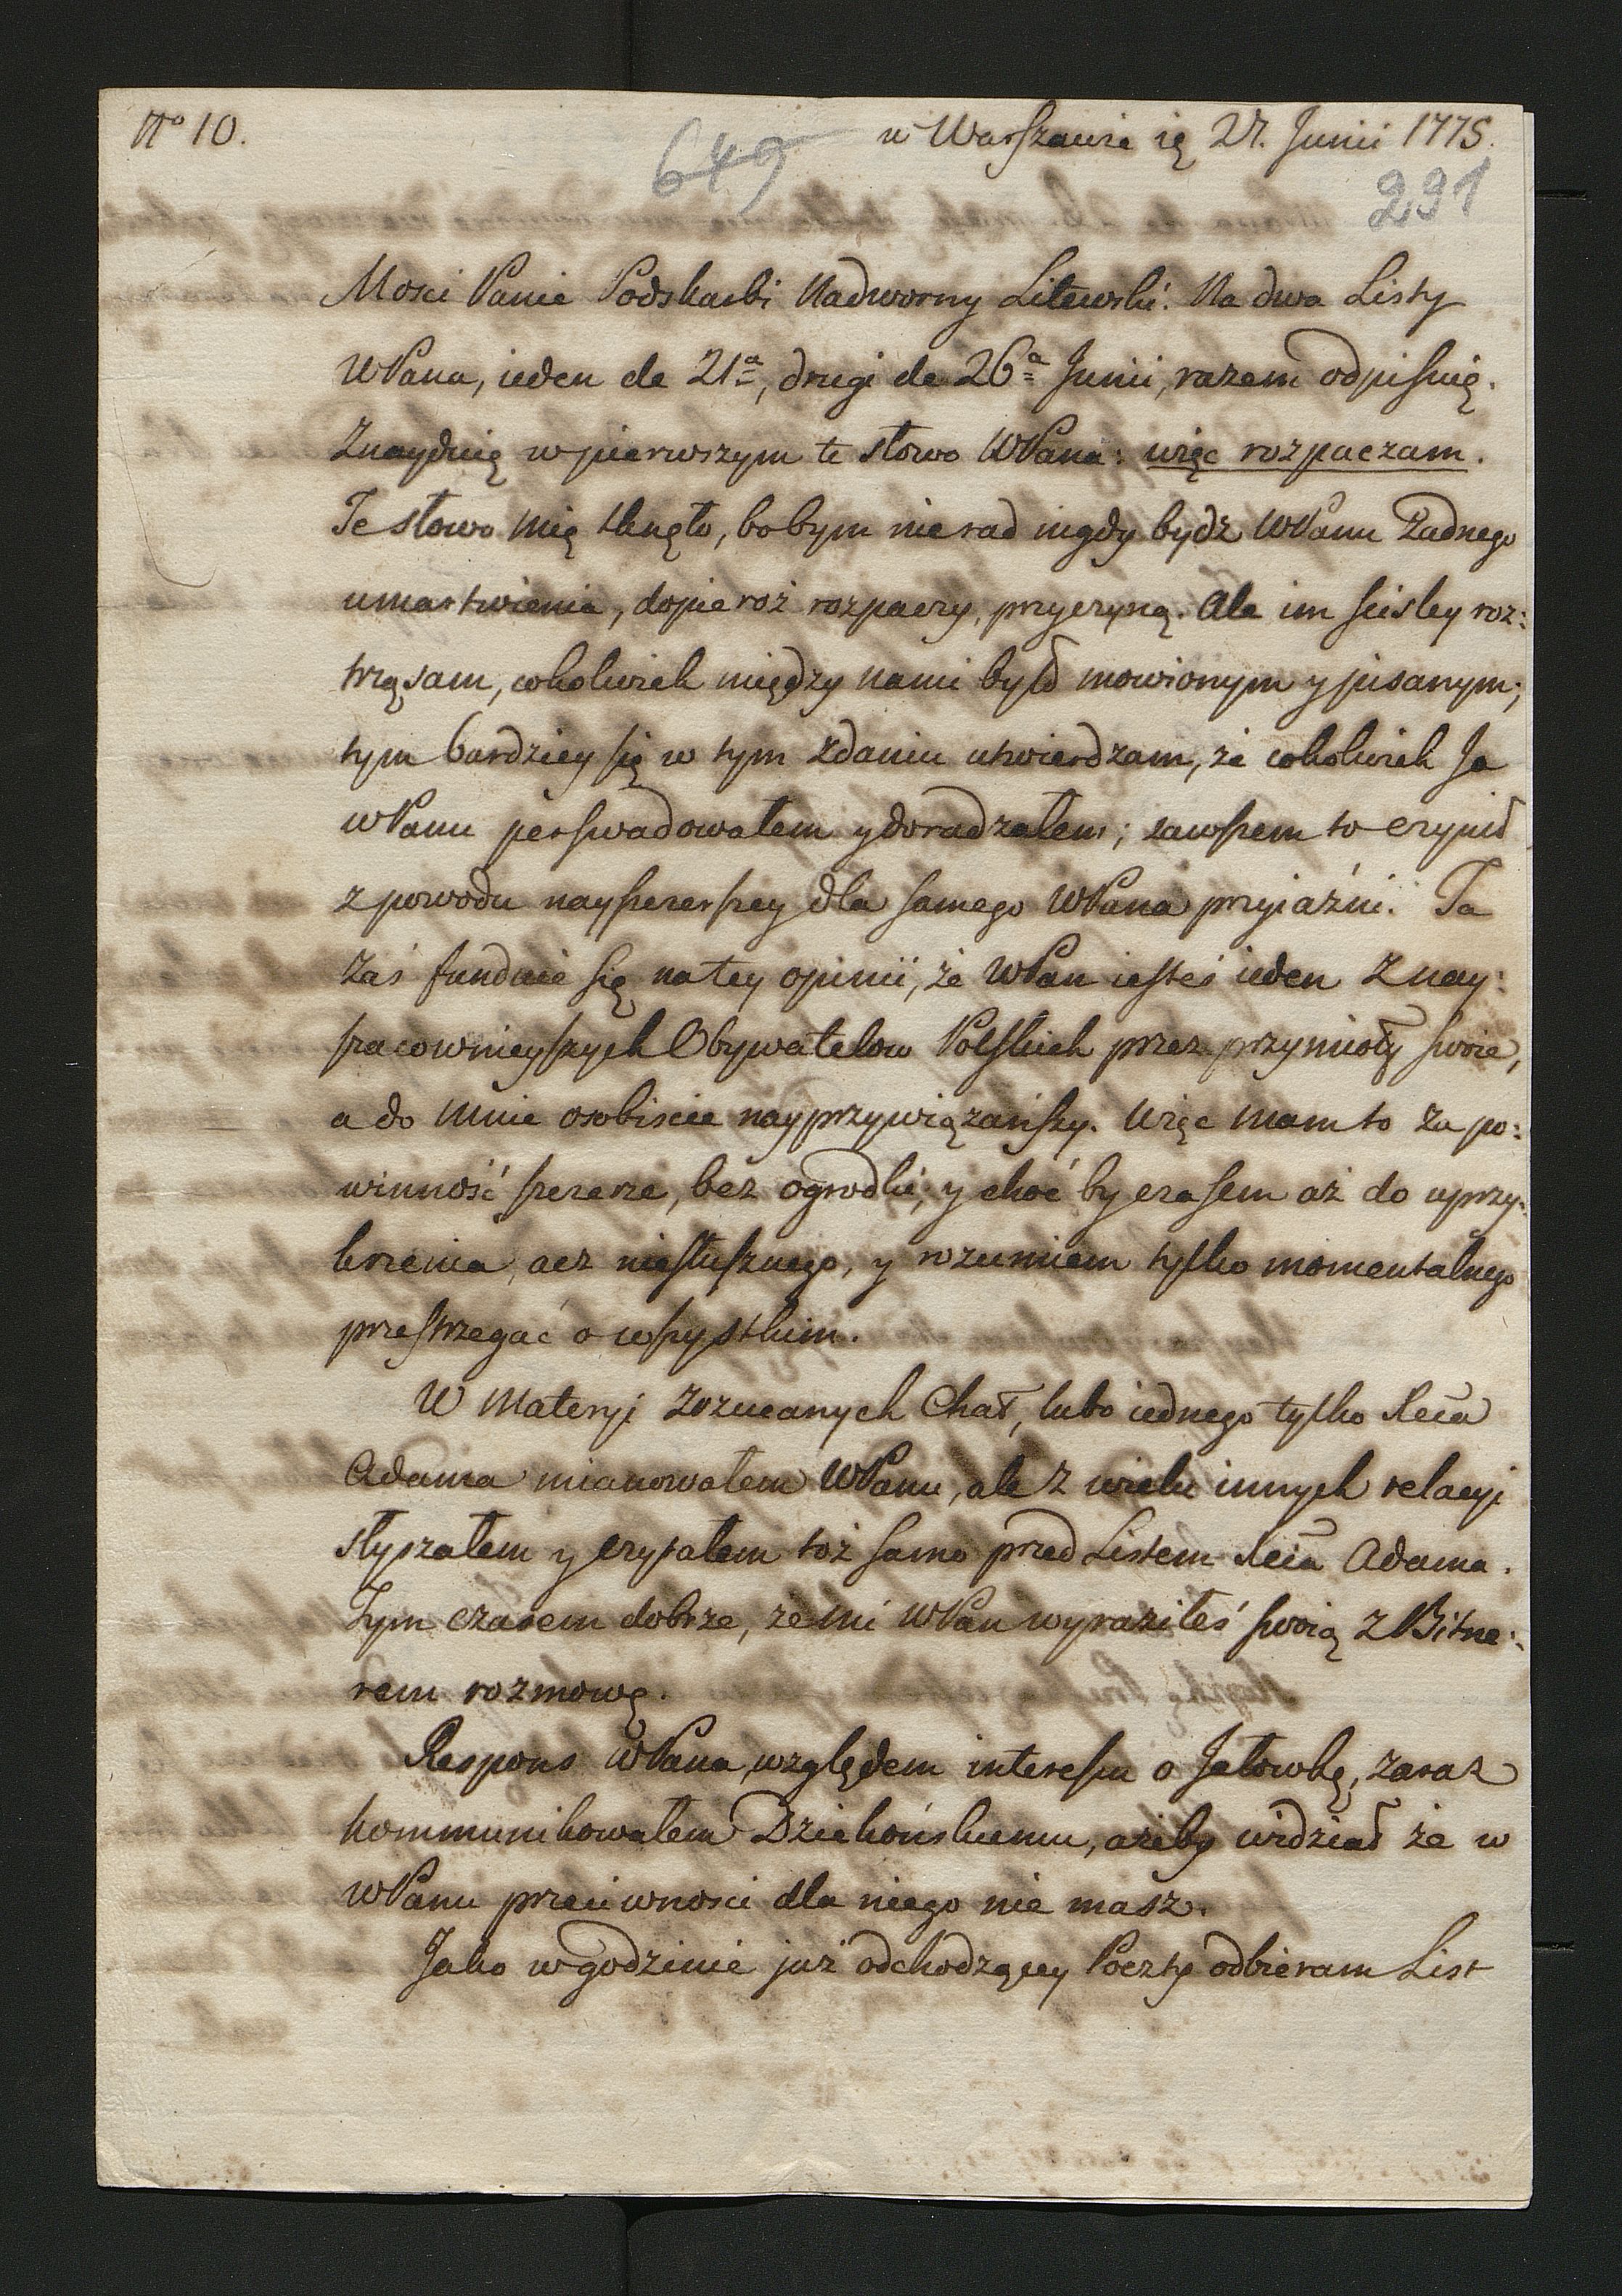 No 10.
w Warszawie ię 27. Junii 1775.
649
291
Mosci Panie Podskarbi Nadworny Litewski. Na dwa Listy
WPana, ieden de 21a, drugi de 26a Junii, razem odpisuię.
Znayduię w pierwszym te słowo WPana: więc rozpaczam.
Te słowo mię tknęło, bo bym nie rad nigdy bydz WPanu żadnego
umartwienia, dopieroż rozpaczy, przyczyną. Ale im scisley roz:
trząsam, cokolwiek między nami było mowionym y pisanym;
tym bardziey się w tym zdaniu utwierdzam, że cokolwiek Ja
WPanu perswadowałem y doradzałem; zawszem to czynił
z powodu nayszczerszey dla samego WPana przyiaźni. Ta
zaś funduie się na tey opinii, że WPan iesteś ieden z nay:
szacownieyszych Obywatelow Polskich przez przymioty swoie,
a do mnie osobiscie nayprzywiązańszy. Więc mam to za po:
winność szczerze, bez ogrodki, y choć by czasem aż do uprzy:
krzenia, acz niesłusznego, y rozumiem tylko momentalnego
przestrzegać o wszystkim.
W Materyi zozucanych Chat, lubo iednego tylko Xcia
Adama mianowałem WPanu, ale z wielu innych relacyi
słyszałem y czytałem toż samo przed Listem Xcia Adama.
Tym czasem dobrze, że mi WPan wyraziłeś swoią z Bitne:
rem rozmowę.
Respons WPana względem interessu o Jałowkę, zaraz
kommunikowałem Dziekońskiemu, ażeby widział że w
WPanu przeciwnosci dla niego nie masz.
Jako w godzinie już odchodzącey Poczty odbieram List